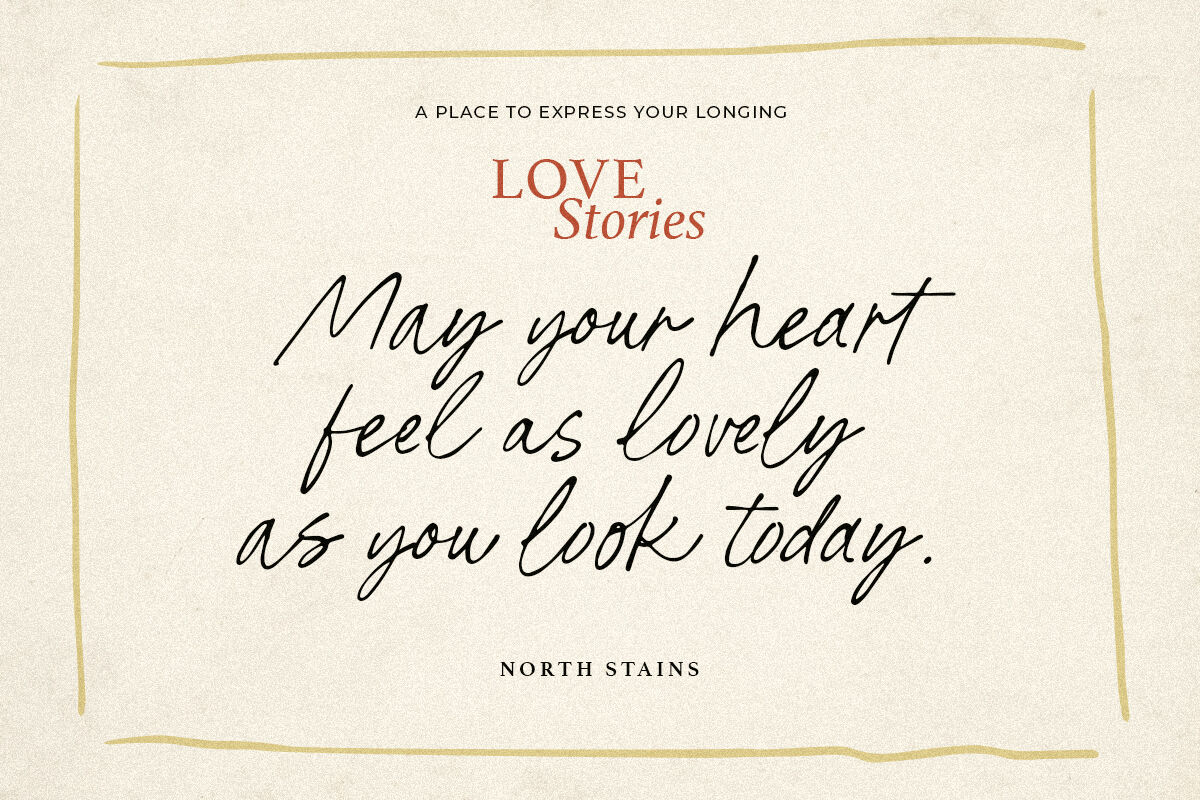 A PLACE TO EXPRESS YOUR LONGING
LOVE
Stories
May your heart
feel as lovely
as you look today.
NORTH STAINS